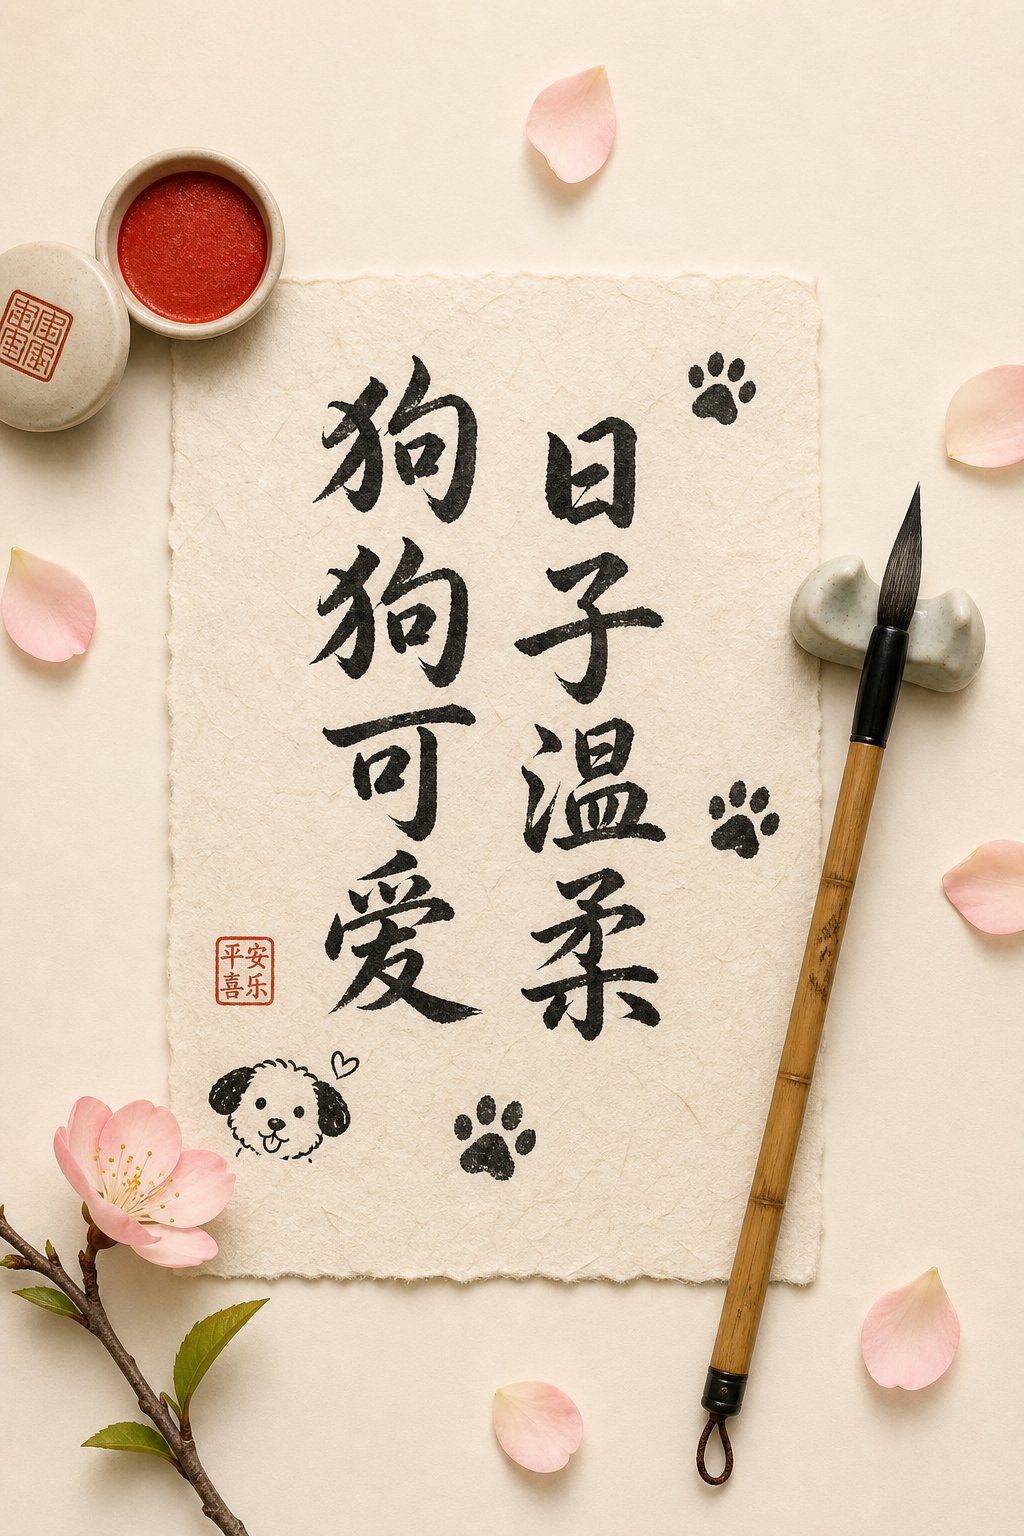 日子温柔
狗狗可爱
平安
喜乐